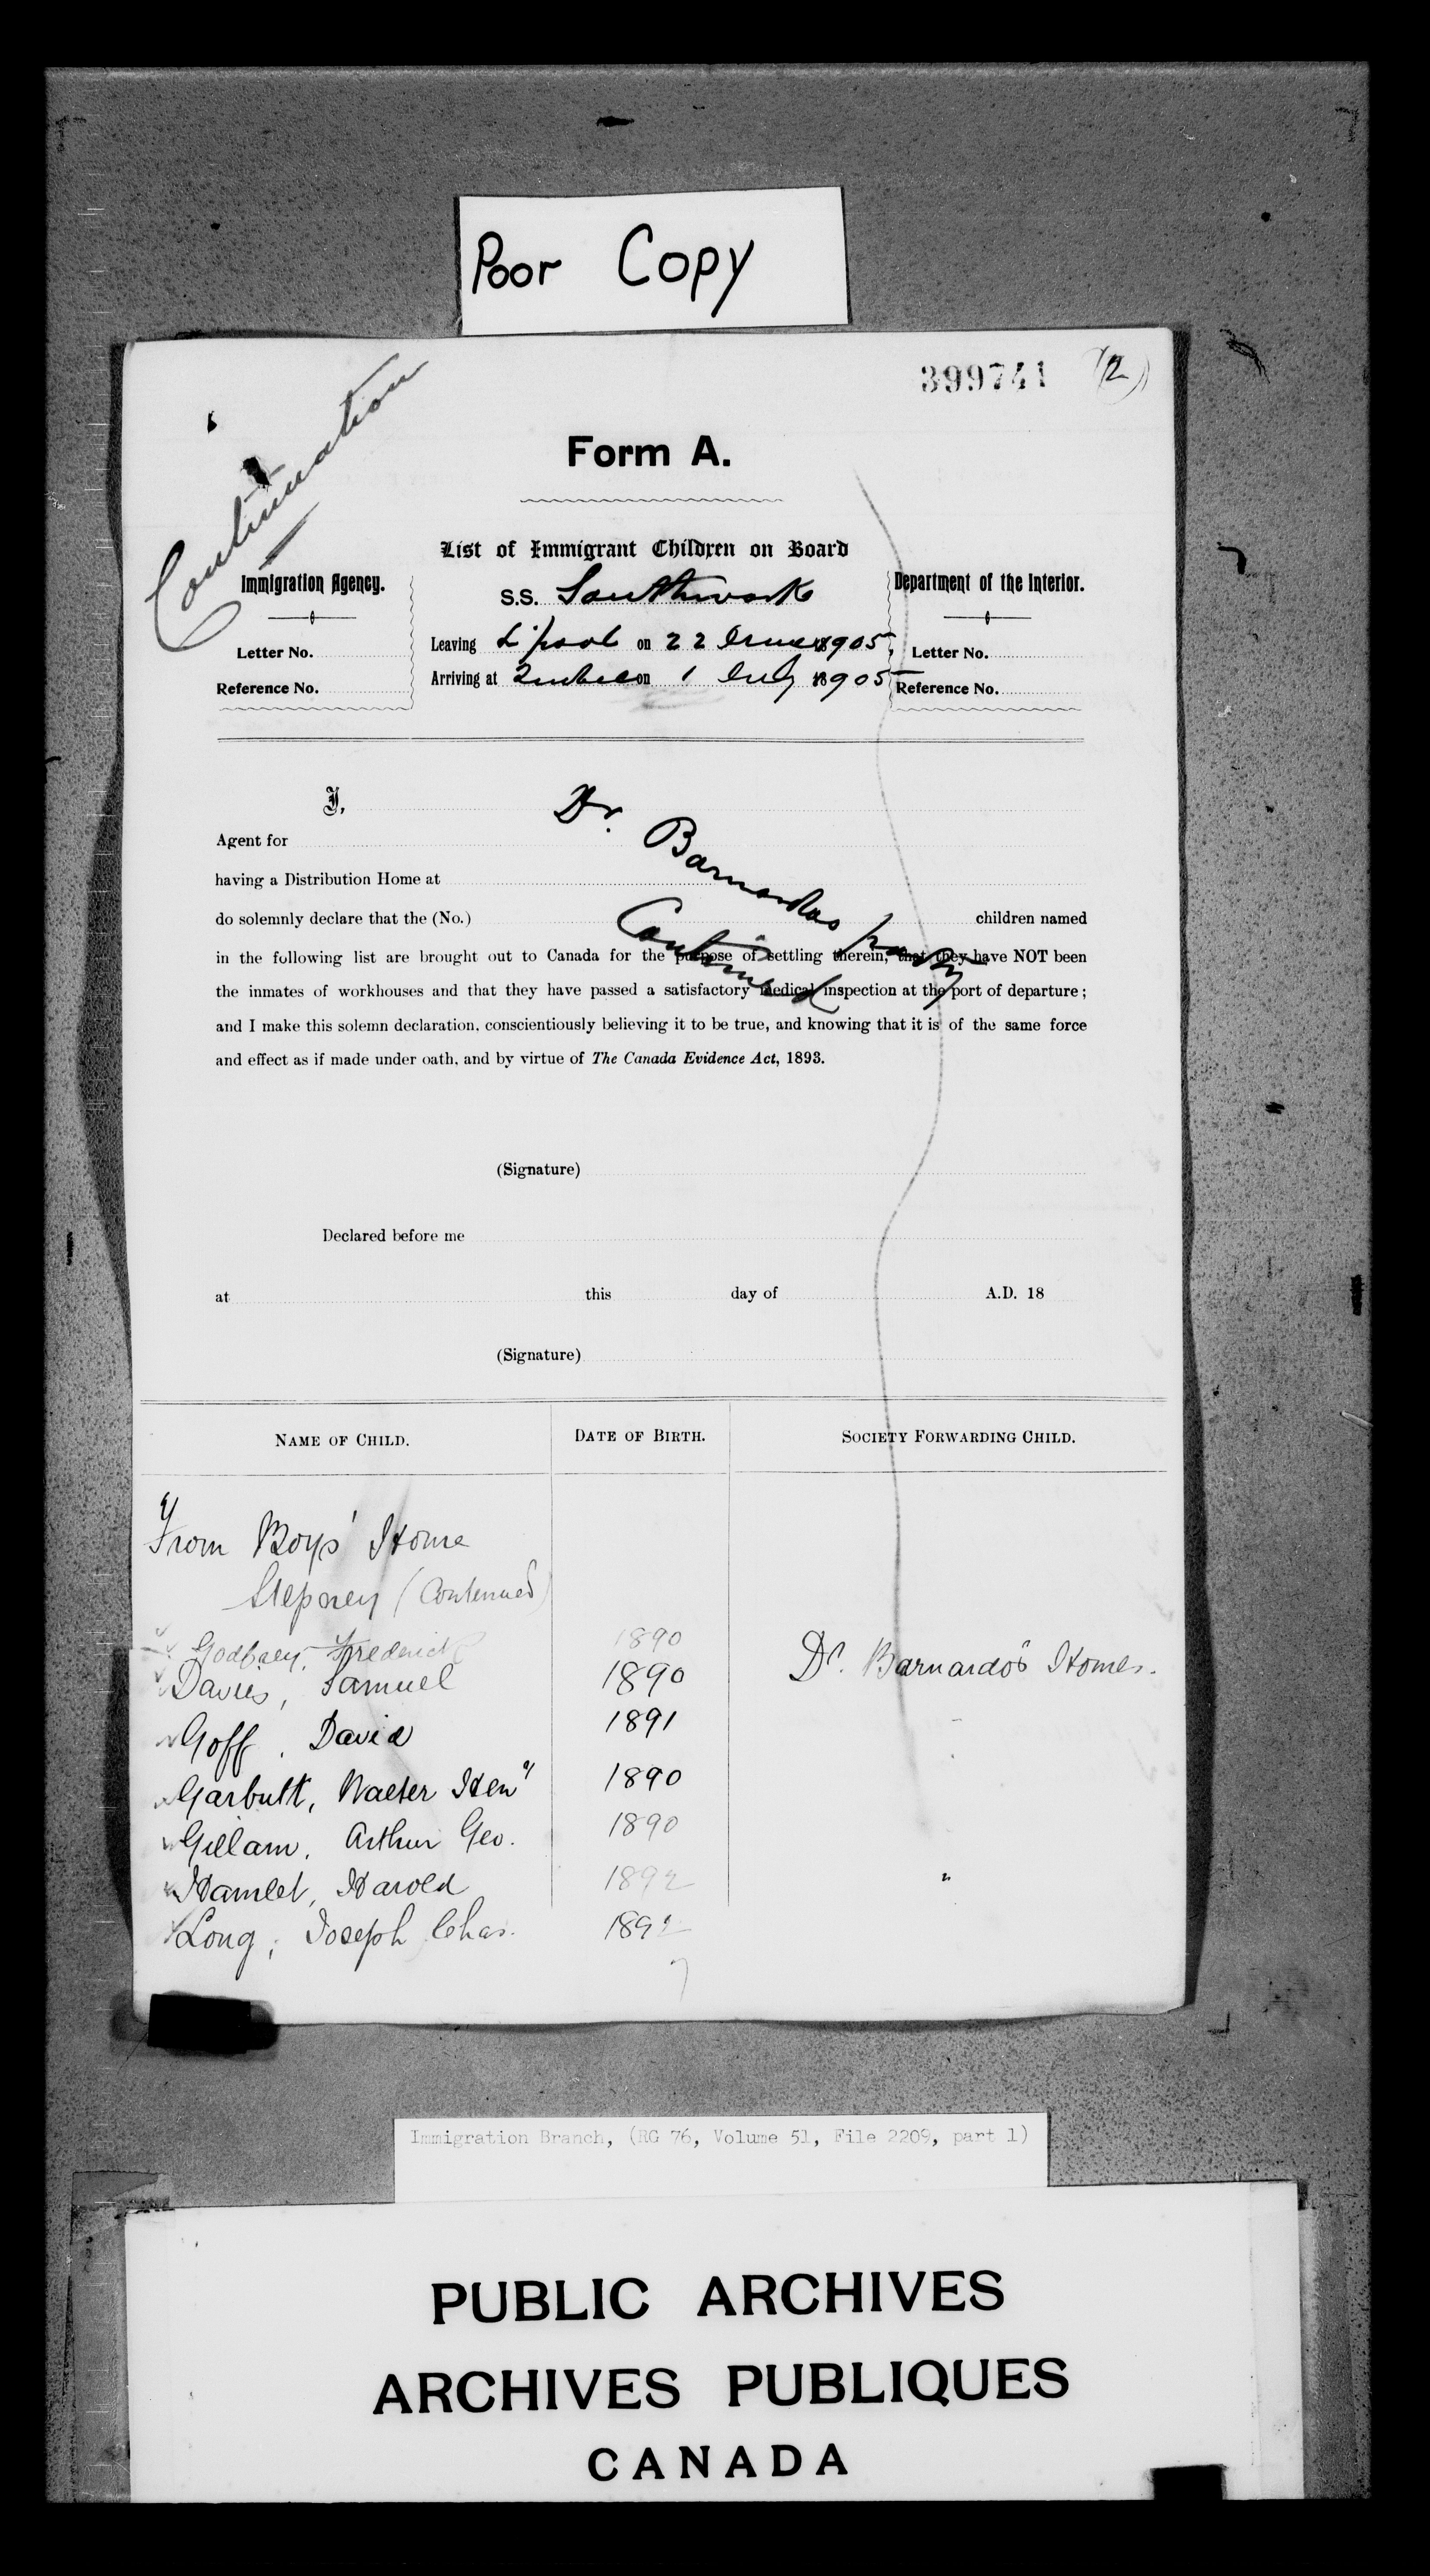 Poor Copy
399741 (12)
Continuation
Form A.
List of Immigrant Children on Board
Immigration Agency.
S.S. Southwark
Department of the Interior.
Letter No.
Leaving L'pool on 22 June 1905,
Letter No.
Reference No.
Arriving at Quebec on 1 July 1905
Reference No.
I,
Dr. Barnardos party
Continued
Agent for
having a Distribution Home at
do solemnly declare that the (No.) children named
in the following list are brought out to Canada for the purpose of settling therein, that they have NOT been
the inmates of workhouses and that they have passed a satisfactory medical inspection at the port of departure;
and I make this solemn declaration, conscientiously believing it to be true, and knowing that it is of the same force
and effect as if made under oath, and by virtue of The Canada Evidence Act, 1893.
(Signature)
Declared before me
at this day of A.D. 18
(Signature)
NAME OF CHILD. DATE OF BIRTH. SOCIETY FORWARDING CHILD.
From Boys' Home
Stepney (Continued)
Frederick 1890
Davies, Samuel 1890 Dr. Barnardo's Homes.
Goff, David 1891
Garbutt, Walter Heny 1890
Gillam, Arthur Geo. 1890
Hamlet, Harold 1892 "
Long, Joseph Chas. 1892
7
Immigration Branch, (RG 76, Volume 51, File 2209, part 1)
PUBLIC ARCHIVES
ARCHIVES PUBLIQUES
CANADA